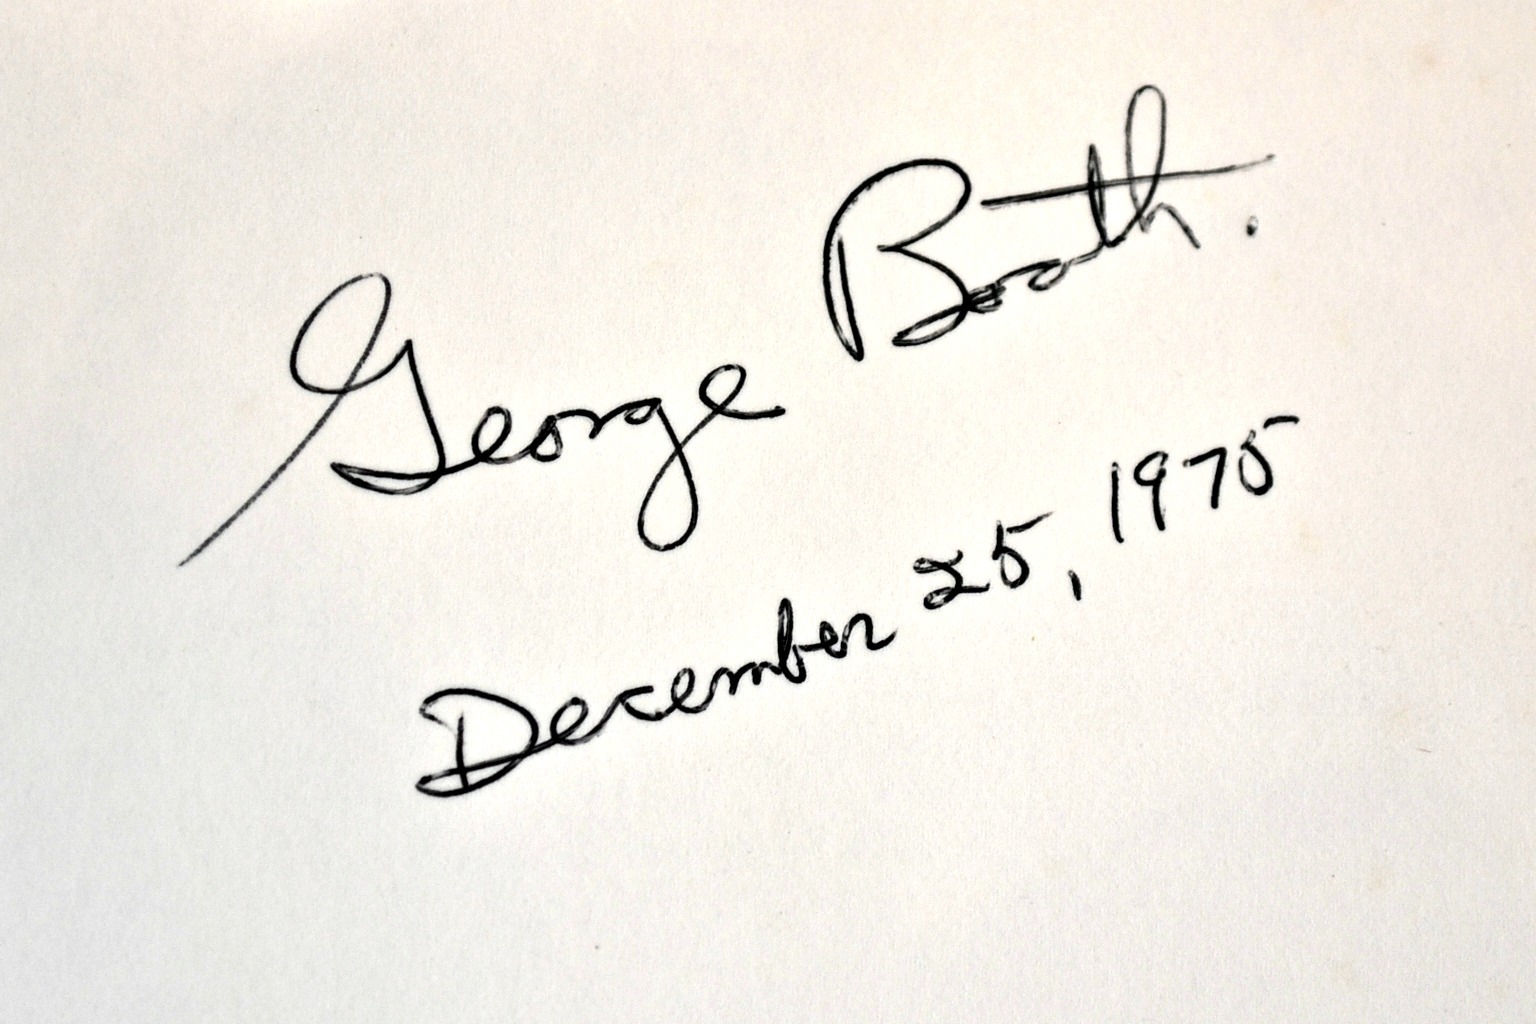 George Booth.
December 25, 1975